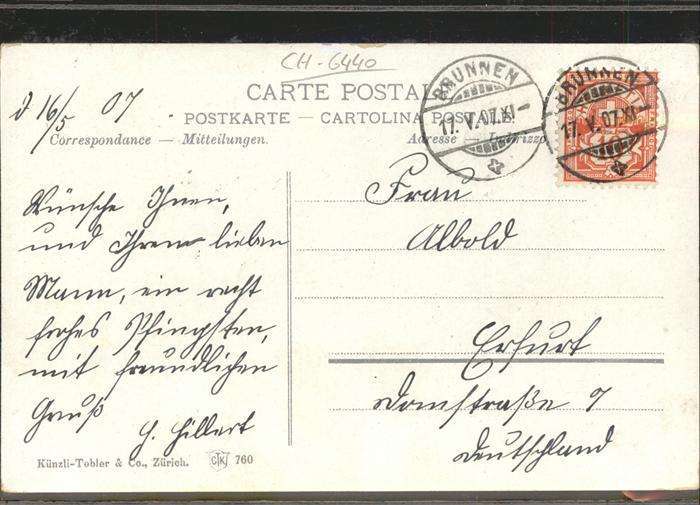 CH-6440
CARTE POSTAL
POSTKARTE — CARTOLINA POST
Correspondance — Mitteilungen.
Adresse — Indirizzo
BRUNNEN
17. V. 07. XI—
BRUNNEN
17. V. 07. XI—
d 16/5 07
Wünsche Ihnen,
und Ihrem lieben
Mann, ein recht
frohes Pfingsten,
mit freundlichen
Gruß
G. Hillert
Frau
Albold
Erfurt
Domstraße 7
Deutschland
Künzli-Tobler & Co., Zürich.
CTK
760